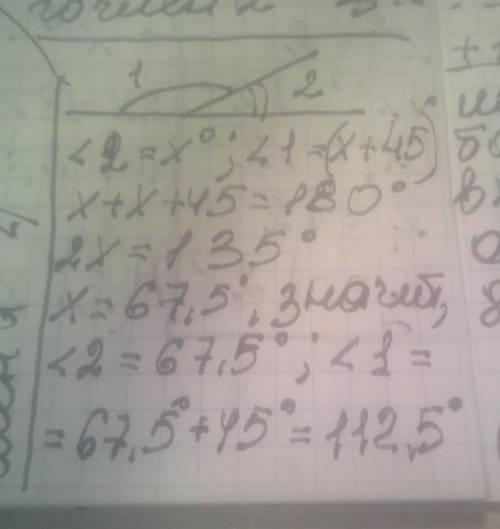 1
2
<2 = x°; <1 = (x+45)°
x+x+45=180°
2x=135°
x=67,5°, значит,
<2 = 67,5°; <1 =
= 67,5°+45° = 112,5°